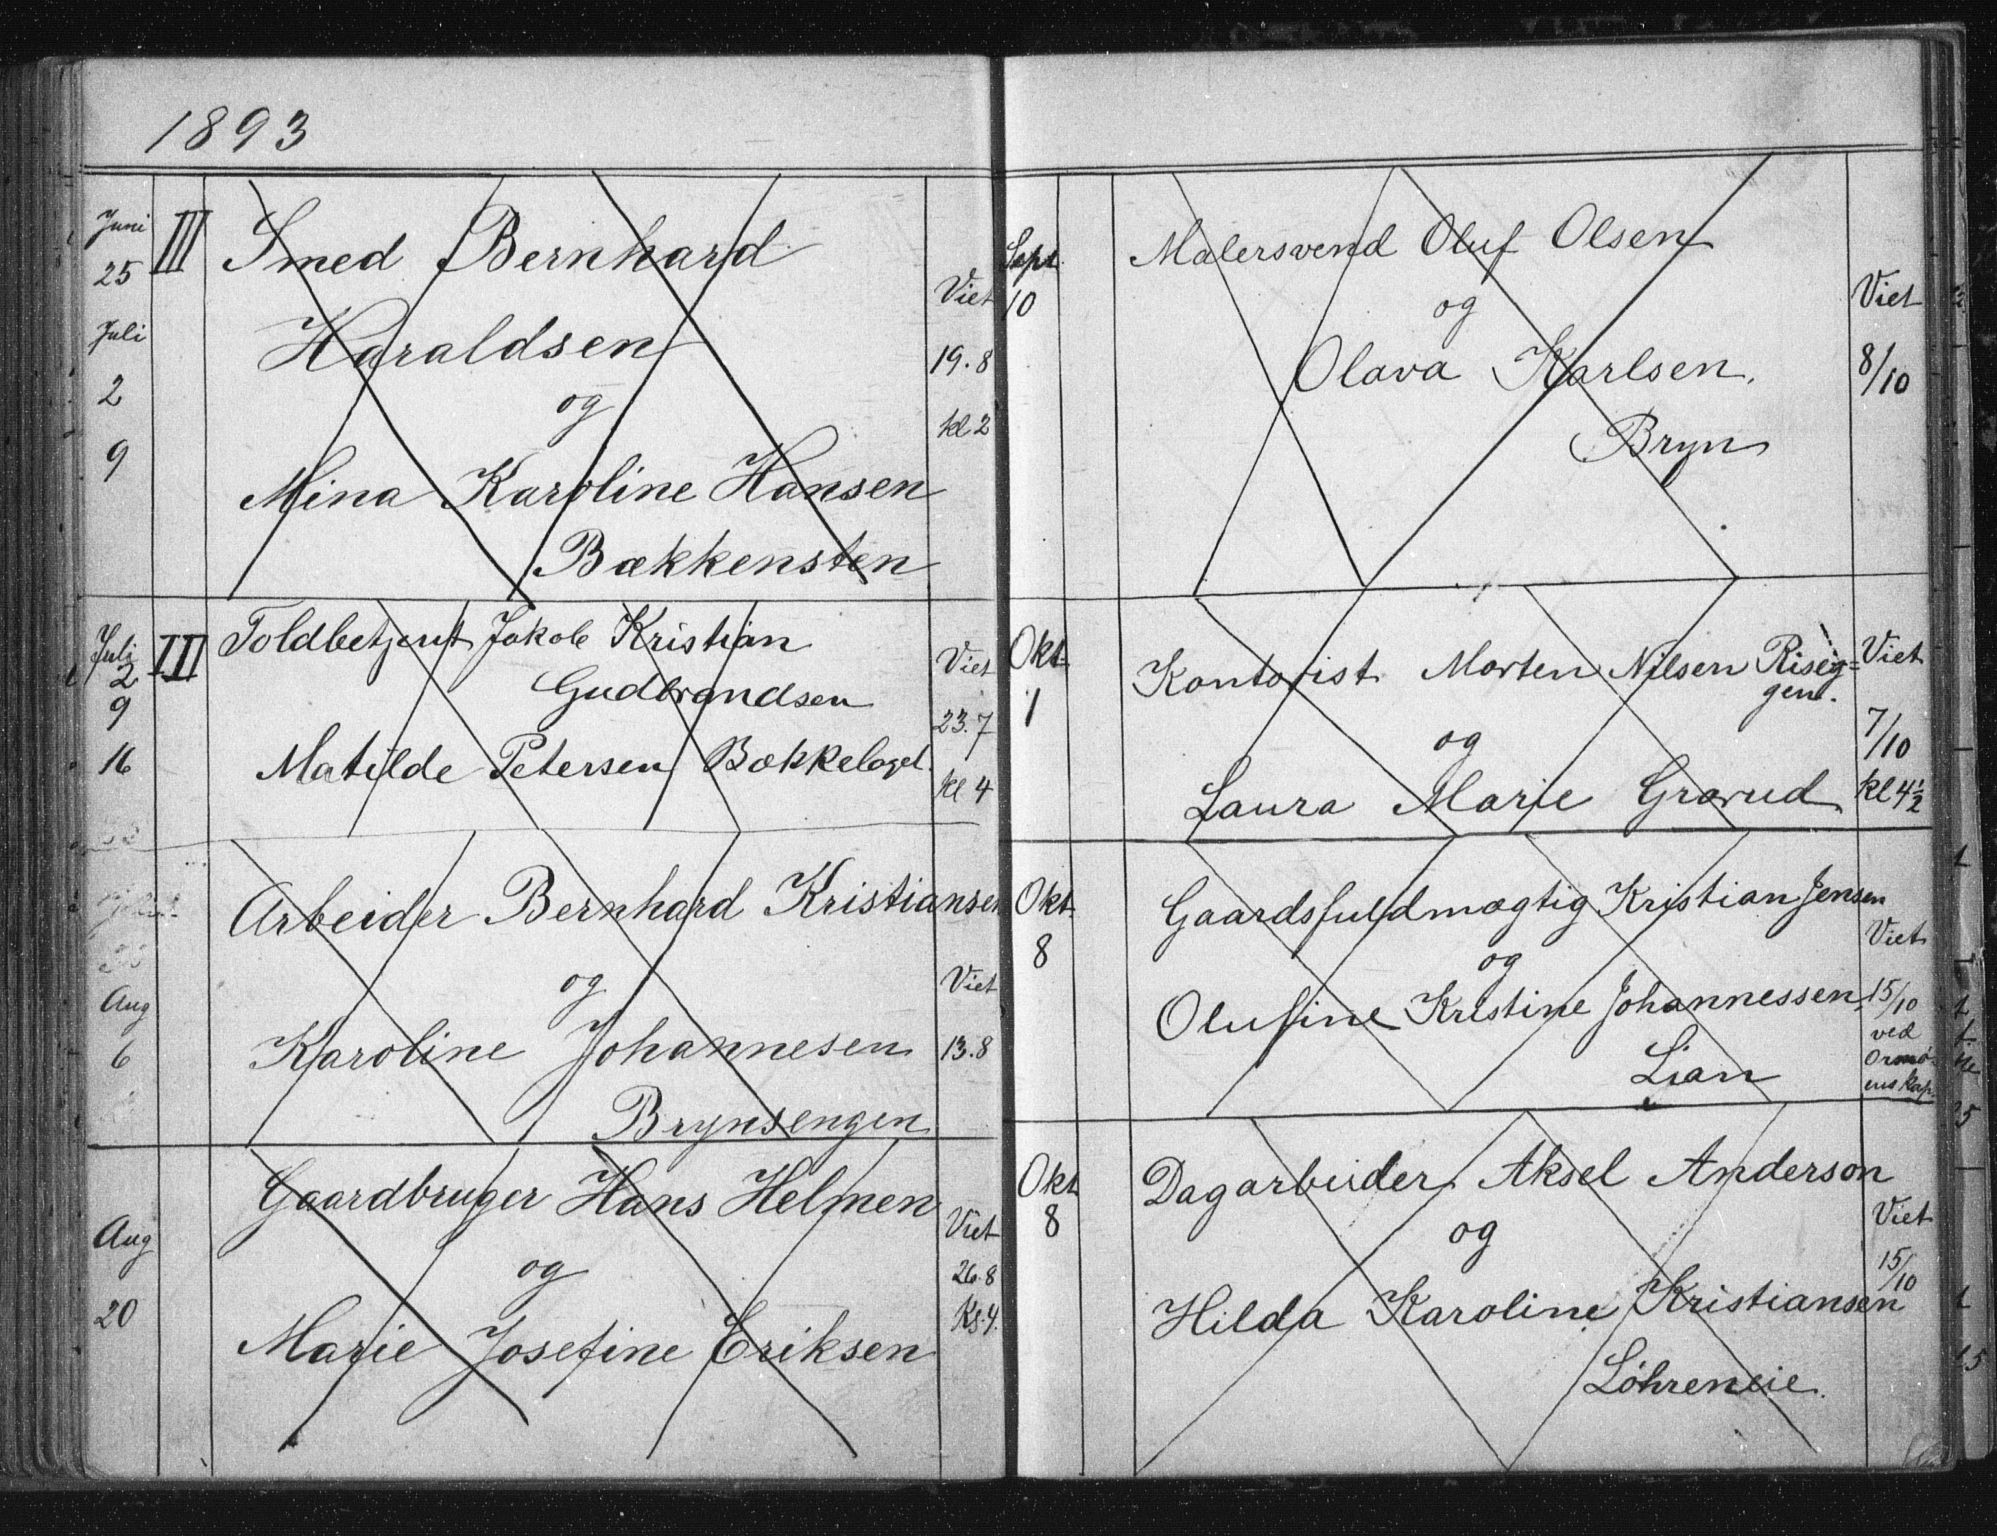 1893
Juni 25 III Smed Bernhard
Juli 2 Haraldsen Viet 19.8
og kl 2
9 Mina Karoline Hansen
Bækkensten
Juli 2 III Toldbetjent Jakob Kristian Viet
9 Gudbrandsen 23.7
16 Matilde Petersen Bækkelaget. kl 4
Arbeider Bernhard Kristiansen
og Viet
Aug 6 Karoline Johannesen 13.8
Brynsengen
Gaardbruger Hans Helmen Viet
Aug og 26.8
20 Marie Josefine Eriksen Kl. 4.
Sept 10 Malersvend Oluf Olsen Viet
og
Olava Karlsen. 8/10
Bryn
Okt 1 Kontorist Morten Nilsen Risig= Viet
gen.
og 7/10
Laura Marie Grorud kl 4½
Okt 8 Gaardsfuldmægtig Kristian Jensen
og Viet
Olufine Kristine Johannessen, 15/10
Lian ved
Ormø-
ens kap.
Okt 8 Dagarbeider Aksel Anderson
og Viet
15/10
Hilda Karoline Kristiansen
Løhreneie.